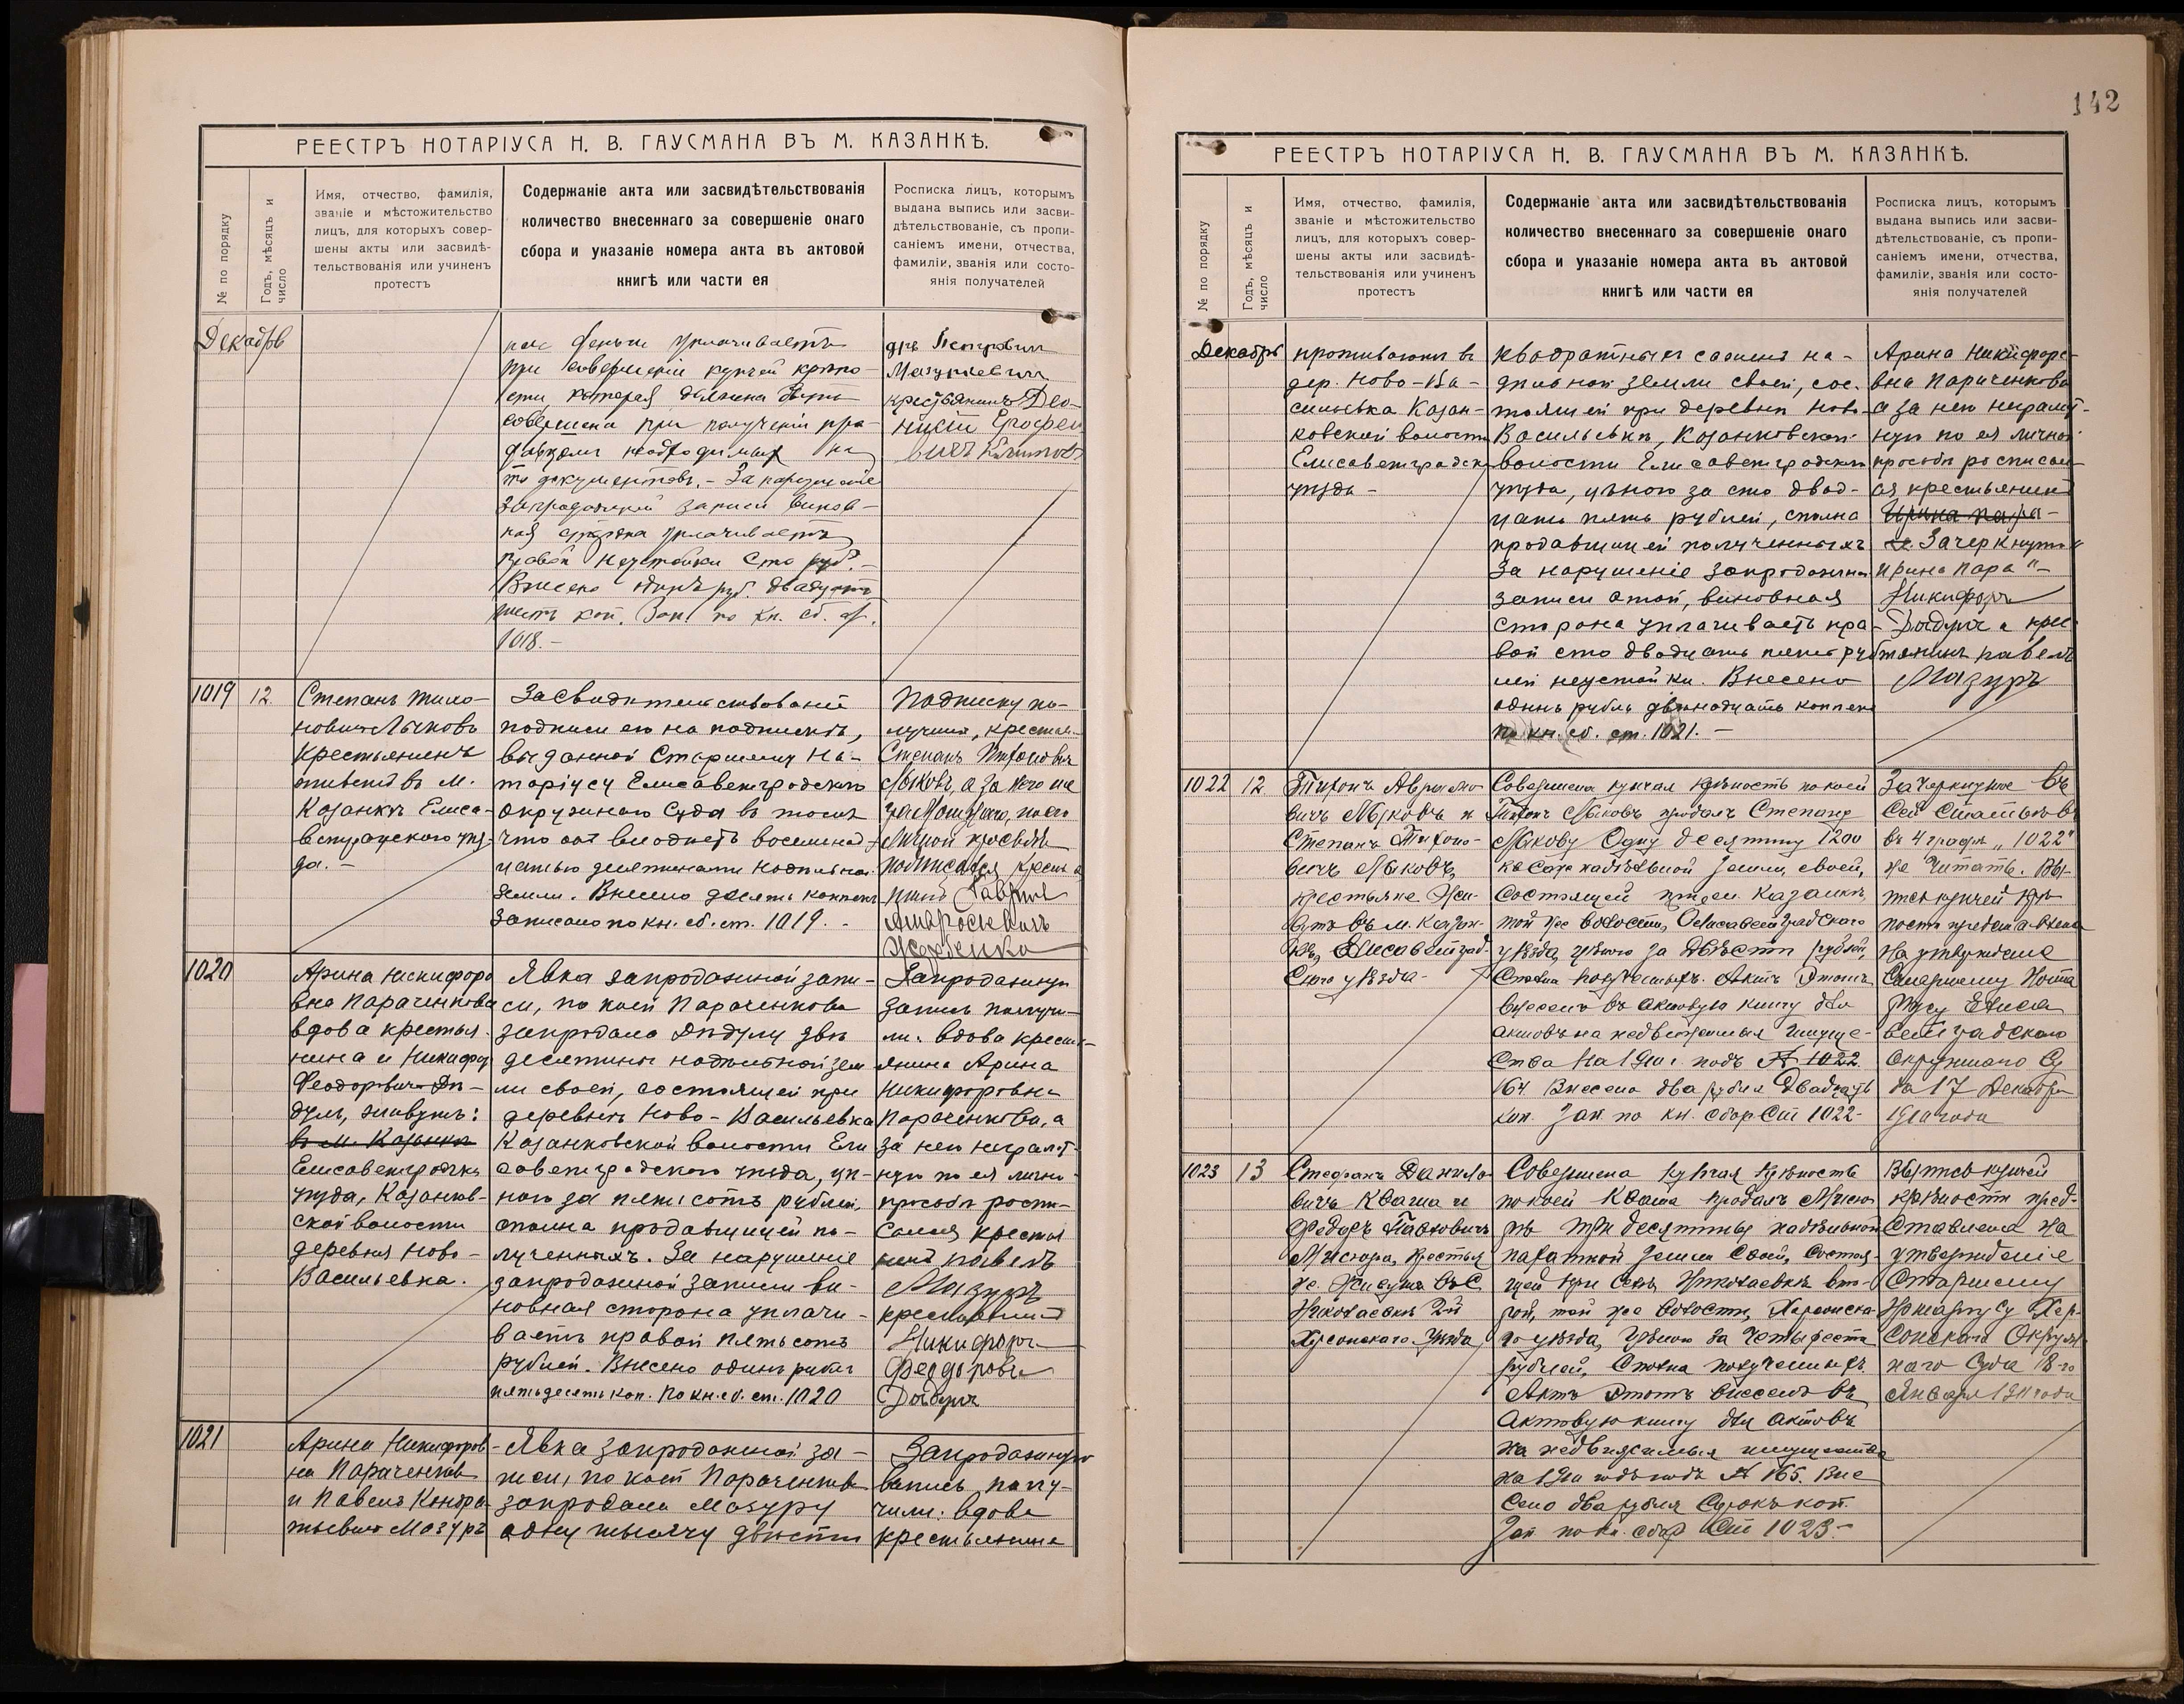 РЕЕСТРЪ НОТАРІУСА Н. В. ГАУСМАНА ВЪ М. КАЗАНКѢ.
№ по порядку
Годъ, мѣсяцъ и число
Имя, отчество, фамилія,
званіе и мѣстожительство
лицъ, для которыхъ совер-
шены акты или засвидѣ-
тельствованія или учиненъ
протестъ
Содержаніе акта или засвидѣтельствованія
количество внесеннаго за совершеніе онаго
сбора и указаніе номера акта въ актовой
книгѣ или части ея
Росписка лицъ, которымъ
выдана выпись или засви-
дѣтельствованіе, съ пропи-
саніемъ имени, отчества,
фамиліи, званія или состо-
янія получателей
Декабрь
деньги уплачиваетъ
при совершеніи купчей крѣпо-
сти, которая должна быть
совершена при полученіи про-
давцомъ необходимыхъ на
то документовъ. - За нарушеніе
запродажной записи винов-
ная сторона уплачиваетъ
правой неустойки сто руб. -
Внесено одинъ руб. двадцать
шесть коп. Зап. по кн. сб. ст.
1018. -
дръ Петровичъ
крестьянинъ Део-
нисій Ерофее
вичъ
1019
12
Степанъ Тихо-
новичъ Лысковъ
крестьянинъ
въ м.
Казанкѣ Елиса-
ветградского уѣз-
да. -
Засвидѣтельствованіе
подписи его на подпискѣ,
выданной Старшему Но-
таріусу Елисаветградскаго
Окружнаго Суда въ томъ
что онъ владѣетъ восемнад-
цатью десятинами надѣльной
земли. Внесено десять копѣекъ
Записано по кн. сб. ст. 1019. -
Подписку по-
лучилъ, крестьян-
Степанъ Тихоновичъ
Лысковъ, а за него не
грамотнаго, по его
личной просьбѣ
подписался крестья
нинъ Гавріилъ
Амвросіевичъ
1020
Арина Никифоро
вна Параченкова
вдова крестья-
нина и Никифоръ
Феодоровичъ Дѣ-
дулъ, живутъ:
въ м. Казанкѣ
Елисаветградскаго
уѣзда, Казанков-
ской волости
деревня Ново-
Васильевка.
Явка запродажной запи-
си, по коей Параченкова
запродала Дѣдулу двѣ
десятины надѣльной зем
ли своей, состоящей при
деревнѣ Ново-Васильевка
Казанковской волости Ели
саветградскаго уѣзда, цѣ-
ною за пятьсотъ рублей,
сполна продавщицей по-
лученныхъ. За нарушеніе
запродажной записи ви-
новная сторона уплачи-
ваетъ правой пятьсотъ
рублей. Внесено одинъ рубль
пятьдесятъ коп. По кн. сб. ст. 1020
Запродажную
запись получи-
ли: вдова кресть-
янина Арина
Никифоровна
Параченкова, а
за нею неграмот-
ную по ея лично
просьбѣ роспи-
сался крестья
нинъ Павелъ
Мазуръ
крестьянинъ
Никифоръ
Феодоровъ
Дѣдулъ
1021
Арина Никифоров-
на Параченков
и Павелъ Кондра-
тьевичъ Мазуръ
Явка запродажной за-
писи, по коей Параченкова
запродала Мазуру
одну тысячу двѣсти
Запродажную
запись полу-
чили: вдова
крестьянина
142
РЕЕСТРЪ НОТАРІУСА Н. В. ГАУСМАНА ВЪ М. КАЗАНКѢ.
№ по порядку
Годъ, мѣсяцъ и число
Имя, отчество, фамилія,
званіе и мѣстожительство
лицъ, для которыхъ совер-
шены акты или засвидѣ-
тельствованія или учиненъ
протестъ
Содержаніе акта или засвидѣтельствованія
количество внесеннаго за совершеніе онаго
сбора и указаніе номера акта въ актовой
книгѣ или части ея
Росписка лицъ, которымъ
выдана выпись или засви-
дѣтельствованіе, съ пропи-
саніемъ имени, отчества,
фамиліи, званія или состо-
янія получателей
Декабрь
проживаютъ въ
дер. Ново-Ва-
сильевка Казан-
ковской волости
Елисаветградск
уѣзда -
квадратныхъ сажень на-
дѣльной земли своей, сос-
тоящей при деревнѣ Ново-
Васильевкѣ, Казанковской
волости Елисаветградскаго
уѣзда, цѣною за сто двад-
цать пять рублей, сполна
продавщицей полученныхъ
За нарушеніе запродажной
записи этой, виновная
сторона уплачиваетъ пра-
вой сто двадцать пять руб
лей неустойки. Внесено
одинъ рубль двѣнадцать копѣекъ
по кн. сб. ст. 1021. -
Арина Никифоро-
вна Параченкова
а за нею неграмот-
ную по ея личной
просьбѣ росписал-
ся крестьянинъ
Зачеркнуто „
Ирина Пара" -
Никифоръ
Дѣдулъ и крес
тьянинъ Павелъ
Мазуръ
1022
12
Тихонъ Аврамо-
вичъ Лысковъ и
Степанъ Тихоно-
вичъ Лысковъ,
крестьяне жи-
вутъ въ м. Казан-
кѣ, Елисаветград-
скаго уѣзда -
Совершена купчая крѣпость по коей
Тихонъ Лысковъ продалъ Степану
Лыскову Одну десятину 1200
кв саж надѣльной земли, своей,
состоящей при м. Казанкѣ,
той же волости, Елисаветградскаго
уѣзда, цѣною за двѣсти рублей,
сполна полученныхъ. Актъ этотъ
внесенъ въ актовую книгу для
актовъ на недвижимыя имуще-
ства на 1910 г. подъ № 1022
164. Внесено два рубля двадцать
коп. Зап по кн. сбор Ст 1022-
Зачеркнутое въ
сей статьѣ
въ 4 графѣ „1022"
не читать. Вы-
пись купчей крѣ-
пости представлена
на утвержденіе
Старшему Нота
ріусу Елиса
ветградскаго
Окружнаго Су
да 17 Декабря
1910 года
1023
13
Стефанъ Данило-
вичъ Кваша и
Федоръ Павловичъ
крестья
не. Живутъ въ с.
Николаевкѣ 2й
Херсонскаго уѣзда
Совершена купчая крѣпость
по коей Кваша продалъ
рѣ три десятины надѣльной
пахатной земли своей, состоя-
щей при селѣ Николаевкѣ вто-
рой, той же волости, Херсонска-
го уѣзда, цѣною за четыреста
рублей, сполна полученныхъ.
Актъ этотъ внесенъ въ
Актовую книгу для актовъ
на недвижимыя имущества
на 1910 годъ подъ № 165. Вне
сено два рубля сорокъ коп.
Зап по кн. сбор Ст 1023. -
Выпись купчей
крѣпости пред-
ставлена на
утвержденіе
Старшему
Нотаріусу Хер-
сонскаго Окруж
наго Суда 18-го
Января 1911 года